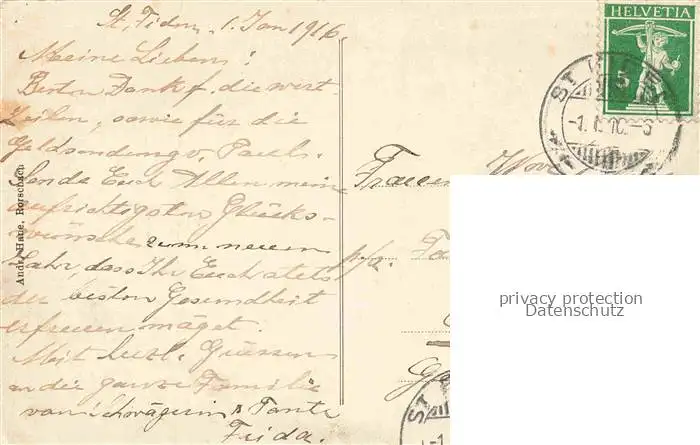 St. Fiden, 1. Jan 1916.
Meine Lieben!
Besten Dank f. die wert.
Zeilen, sowie für die
Geldsendung v. Pauls.
Sende Euch Allen meine
aufrichtigsten Glücks-
wünsche zum neuen
Jahr, dass Ihr Euch stets
der besten Gesundheit
erfreuen möget.
Mit herzl. Grüssen
an die ganze Familie
von Schwägerin & Tante
Frida.
Andr. Hane, Rorschach
HELVETIA
5
Frauen
privacy protection
Datenschutz